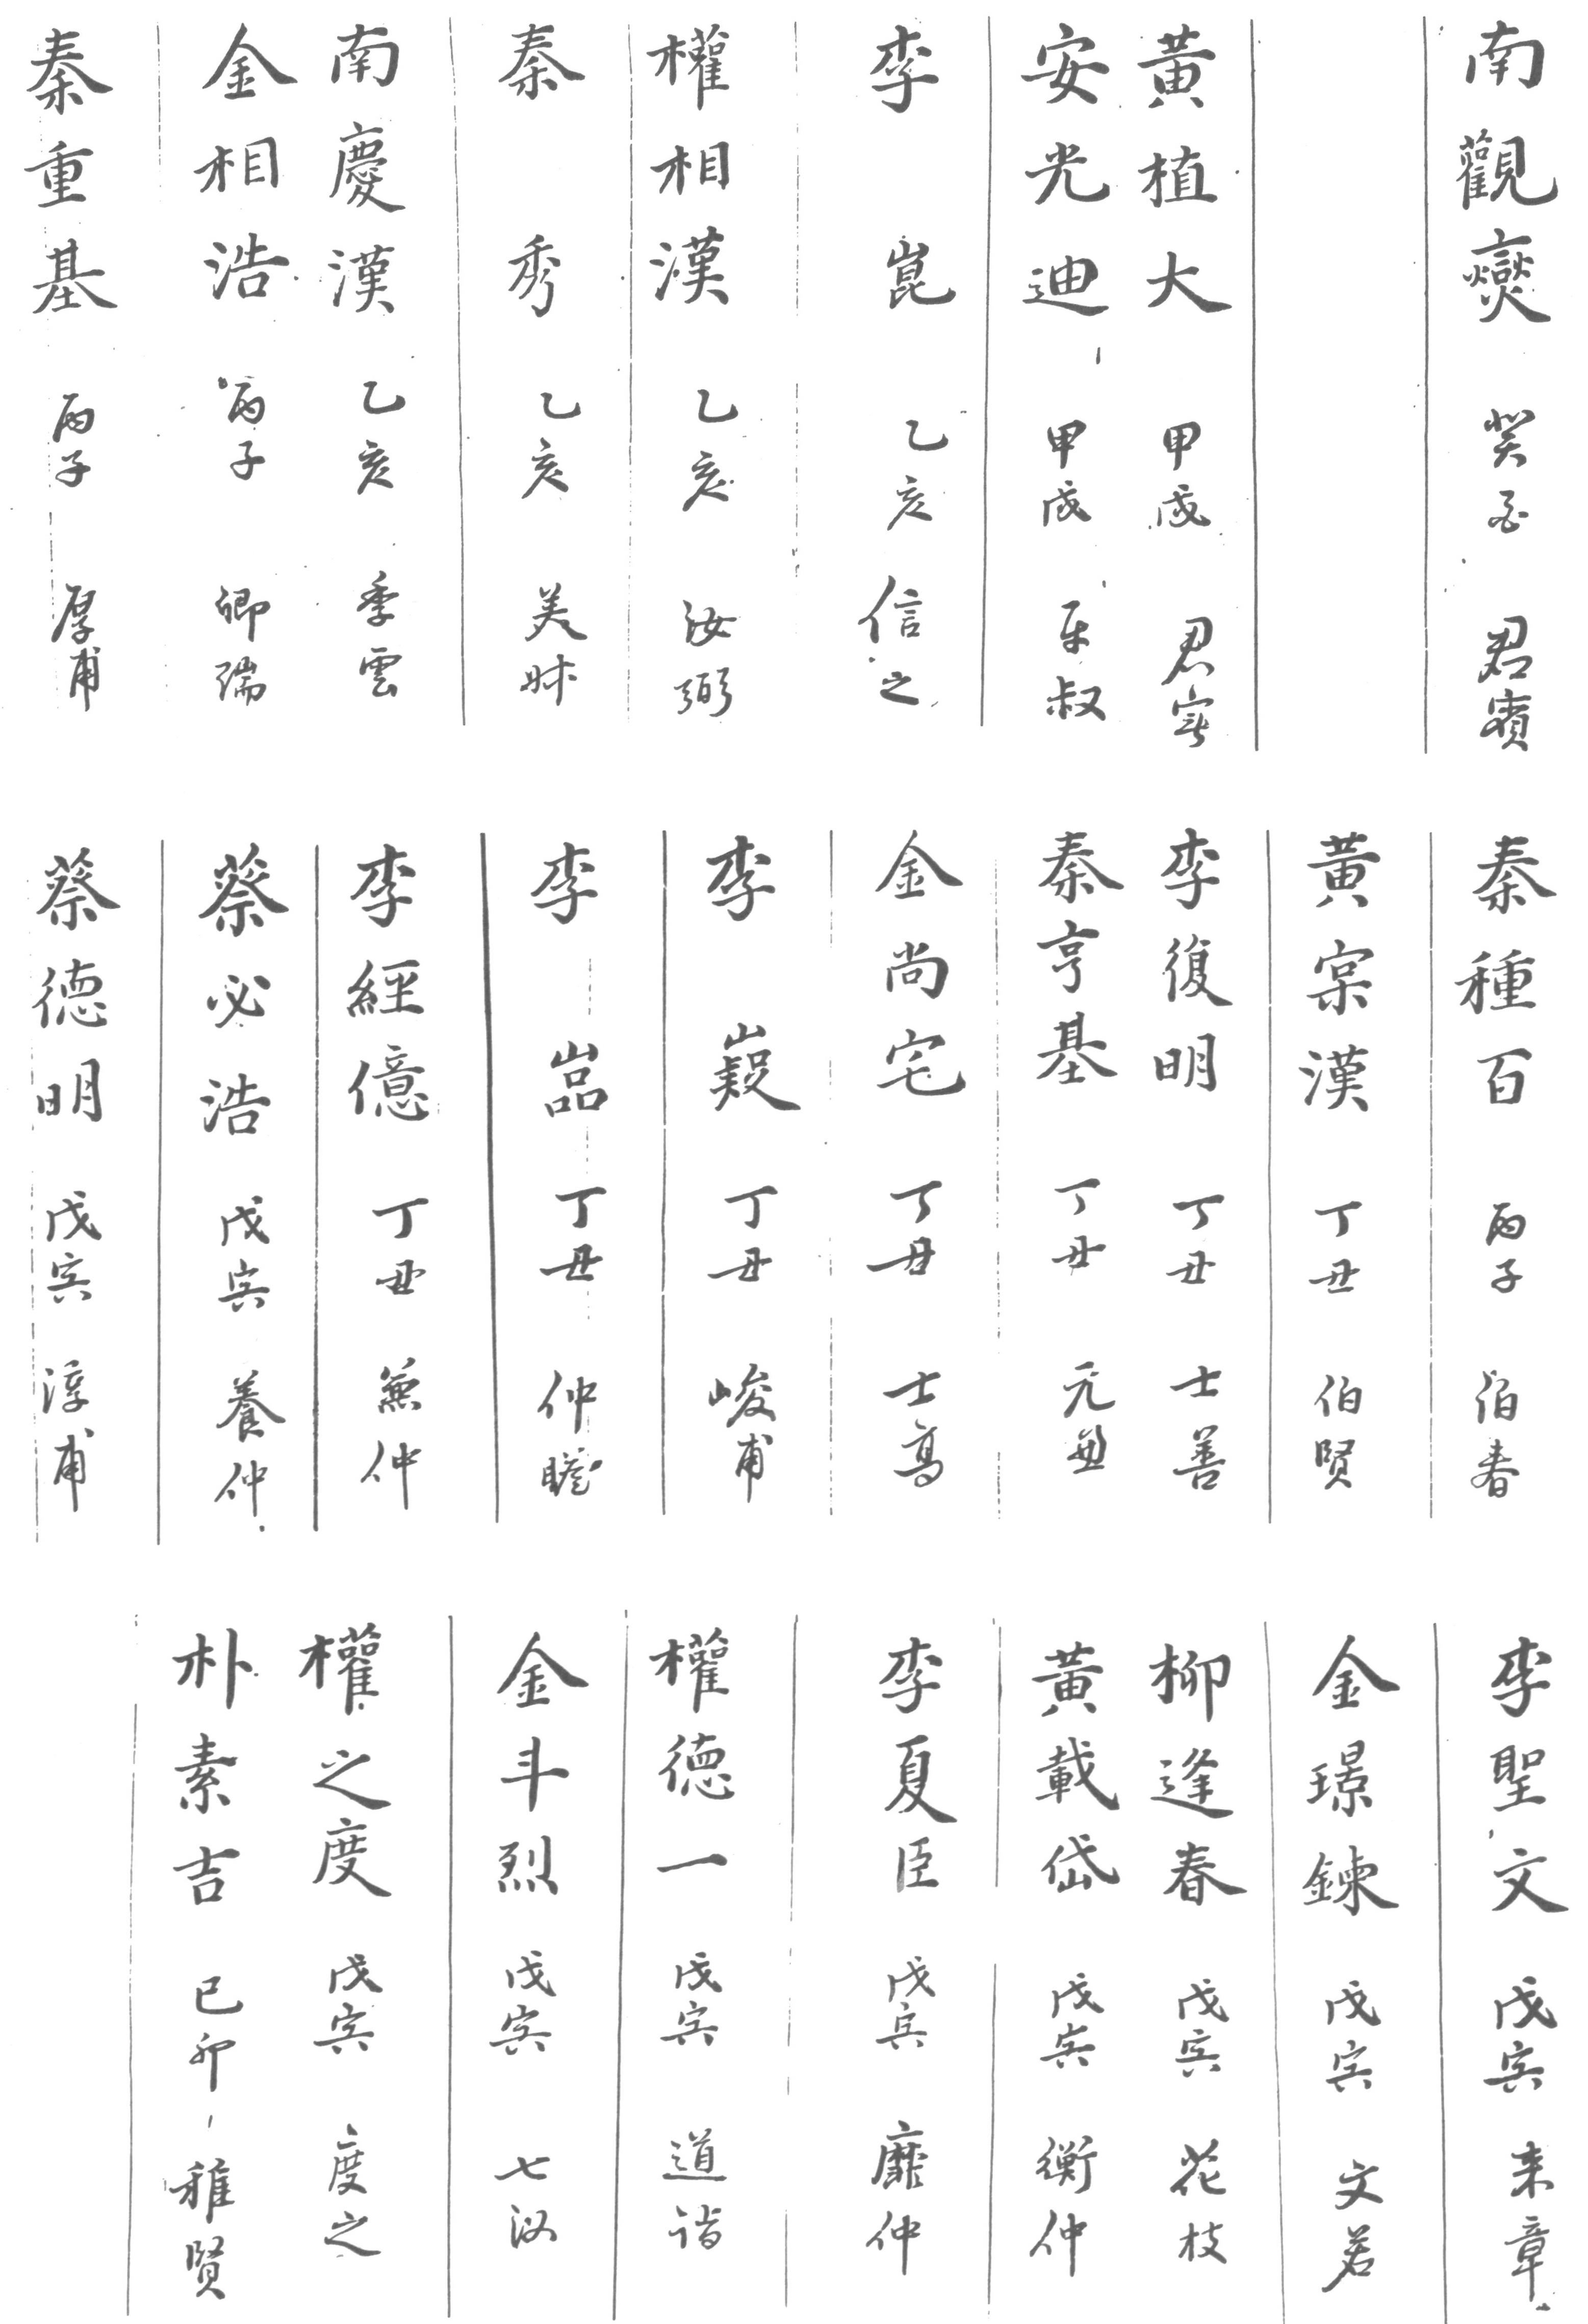 南觀燮 癸酉 君賓
黃植大 甲戌 君寔
安光迪 甲戌 叔
李崑 乙亥 信之
權相漢 乙亥 汝弼
秦秀 乙亥 美
南慶漢 乙亥 季雲
金相浩 丙子 卿瑞
秦重基 丙子 厚甫
秦種百 丙子 伯春
黃寀漢 丁丑 伯賢
李復明 丁丑 士善
秦亨基 丁丑 元
金尚宅 丁丑 士高
李 丁丑 峻甫
李嵓 丁丑 仲瞻
李經億 丁丑 兼仲
蔡必浩 戊寅 養仲
蔡德明 戊寅 淳甫
李聖文 戊寅 来章
金璟鍊 戊寅 文若
柳逢春 戊寅 花枝
黃載岱 戊寅 衡仲
李夏臣 戊寅 仲
權德一 戊寅 道
金斗烈 戊寅 七汉
權之度 戊寅 度之
朴素吉 己卯 稚賢